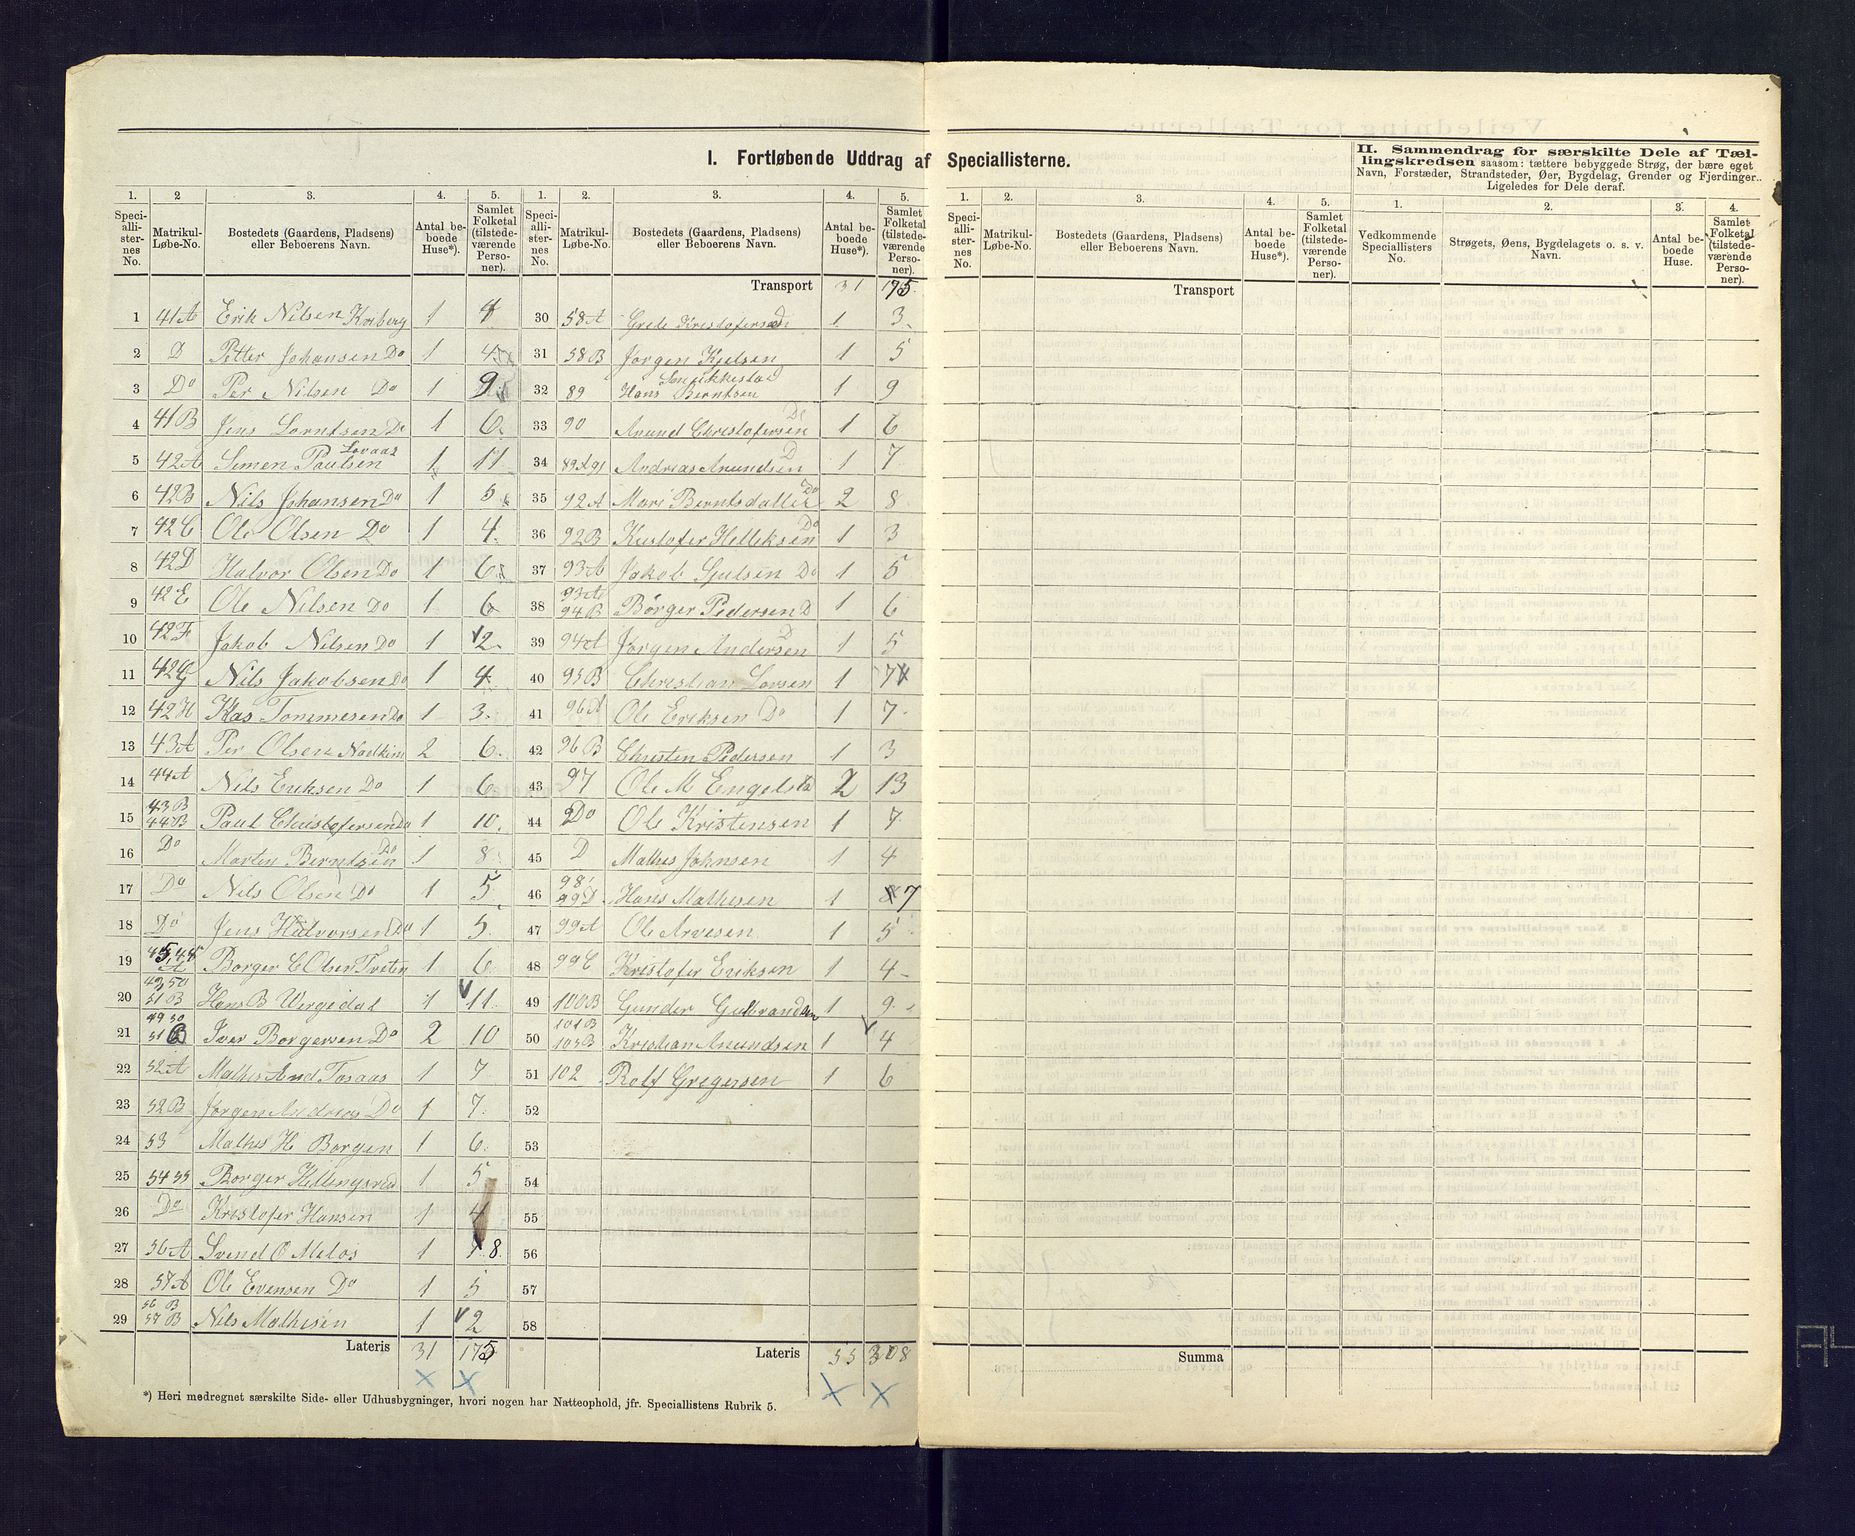 I. Fortløbende Uddrag af Speciallisterne.
II. Sammendrag for særskilte Dele af Tæl-
lingskredsen saasom: tættere bebyggede Strøg, der bære eget
Navn, Forstæder, Strandsteder, Øer, Bygdelag, Grender og Fjerdinger..
Ligeledes for Dele deraf.
1. 2 3. 4. 5.
Speci-allister-nes No. Matrikul-Løbe-No. Bostedets (Gaardens, Pladsens) eller Beboerens Navn. Antal be-boede Huse*). Samlet Folketal (tilstede-værende Perso-ner).
1 41A Erik Nilsen Korberg 1 4
2 D Petter Johansen Do 1 4
3 Do Per Nilsen Do 1 9
4 41B Jens Lorntsen Do 1 6
5 42A Simen Paulsen Lovaas 1 11
6 42B Nils Johansen Do 1 5
7 42C Ole Olsen Do 1 4
8 42D Halvor Olsen Do 1 6
9 42E Ole Nilsen Do 1 6
10 42F Jakob Nilsen Do 1 2
11 42G Nils Jakobsen Do 1 4
12 42H Klas Tommesen Do 1 3
13 43A Per Olsen 2 6
14 44A Nils Eriksen Do 1 6
15 43B 44B Paul Christofersen Do 1 10
16 Do Morten Berntsen Do 1 8
17 Do Nils Olsen Do 1 5
18 Do Jens Halvorsen Do 1 5
19 Borger C Olsen Tveten 1 6
20 49 50 51B Hans B Vergedal 1 11
21 49 50 51 Iver Borgersen Do 2 10
22 52A Mathis And Tosaas 1 7
23 52B Jørgen Andreas Do 1 7
24 53 Mathis H Borgen 1 6
25 54 55 Borger Hellingsrud 1 5
26 Do Kristofer Hansen 1 4
27 56A Svend O Melos 1 8
28 57A Ole Evensen Do 1 5
29 56B 57B Nils Mathisen 1 2
Lateris 31 175
1. 2. 3. 4. 5.
Speci-allister-nes No. Matrikul-Løbe-No. Bostedets (Gaardens, Pladsens) eller Beboerens Navn. Antal be-boede Huse*). Samlet Folketal (tilstede-værende Perso-ner).
Transport 31 175
30 58A Grete Kristofersen D 1 3
31 58B Jørgen Kjelsen 1 5
32 89 Hans Berntsen 1 9
33 90 Anund Christofersen Do 1 6
34 89A 91 Andrias Anundsen D 1 7
35 92A Mari Berntsdatter Do 2 8
36 92B Kristofer Helleksen Do 1 3
37 93A Jakob Gulsen Do 1 5
38 93A 94B Børger Pedersen D 1 6
39 94A Jørgen Andersen D 1 5
40 95B Christian Larsen 1 7
41 96A Ole Eriksen Do 1 7
42 96B Christen Pedersen 1 3
43 97 Ole M Engelsta 2 13
44 Do Ole Kristensen 1 7
45 D Mathis Johnsen 1 4
46 98 99D Hans Mathisen 1 7
47 99A Ole Arvesen 1 5
48 99C Kristofer Eriksen 1 4
49 100B Gunder Gulbrandsen 1 9
50 101B 103B Kristian Anundsen 1 4
51 102 Rolf Gregersen 1 6
52
53
54
55
56
57
58
Lateris 55 308
*) Heri medregnet særskilte Side- eller Udhusbygninger, hvori nogen har Natteophold, jfr. Speciallistens Rubrik 5.
1. 2. 3. 4. 5.
Speci-allister-nes No. Matrikul-Løbe-No. Bostedets (Gaardens, Pladsens) eller Beboerens Navn. Antal be-boede Huse*). Samlet Folketal (tilstede-værende Perso-ner).
Transport
Summa
1. 2. 3. 4.
Vedkommende Speciallisters No. Strøgets, Øens, Bygdelagets o. s. v. Navn. Antal be-boede Huse. Samlet Folketal (tilstede-værende Perso-ner).